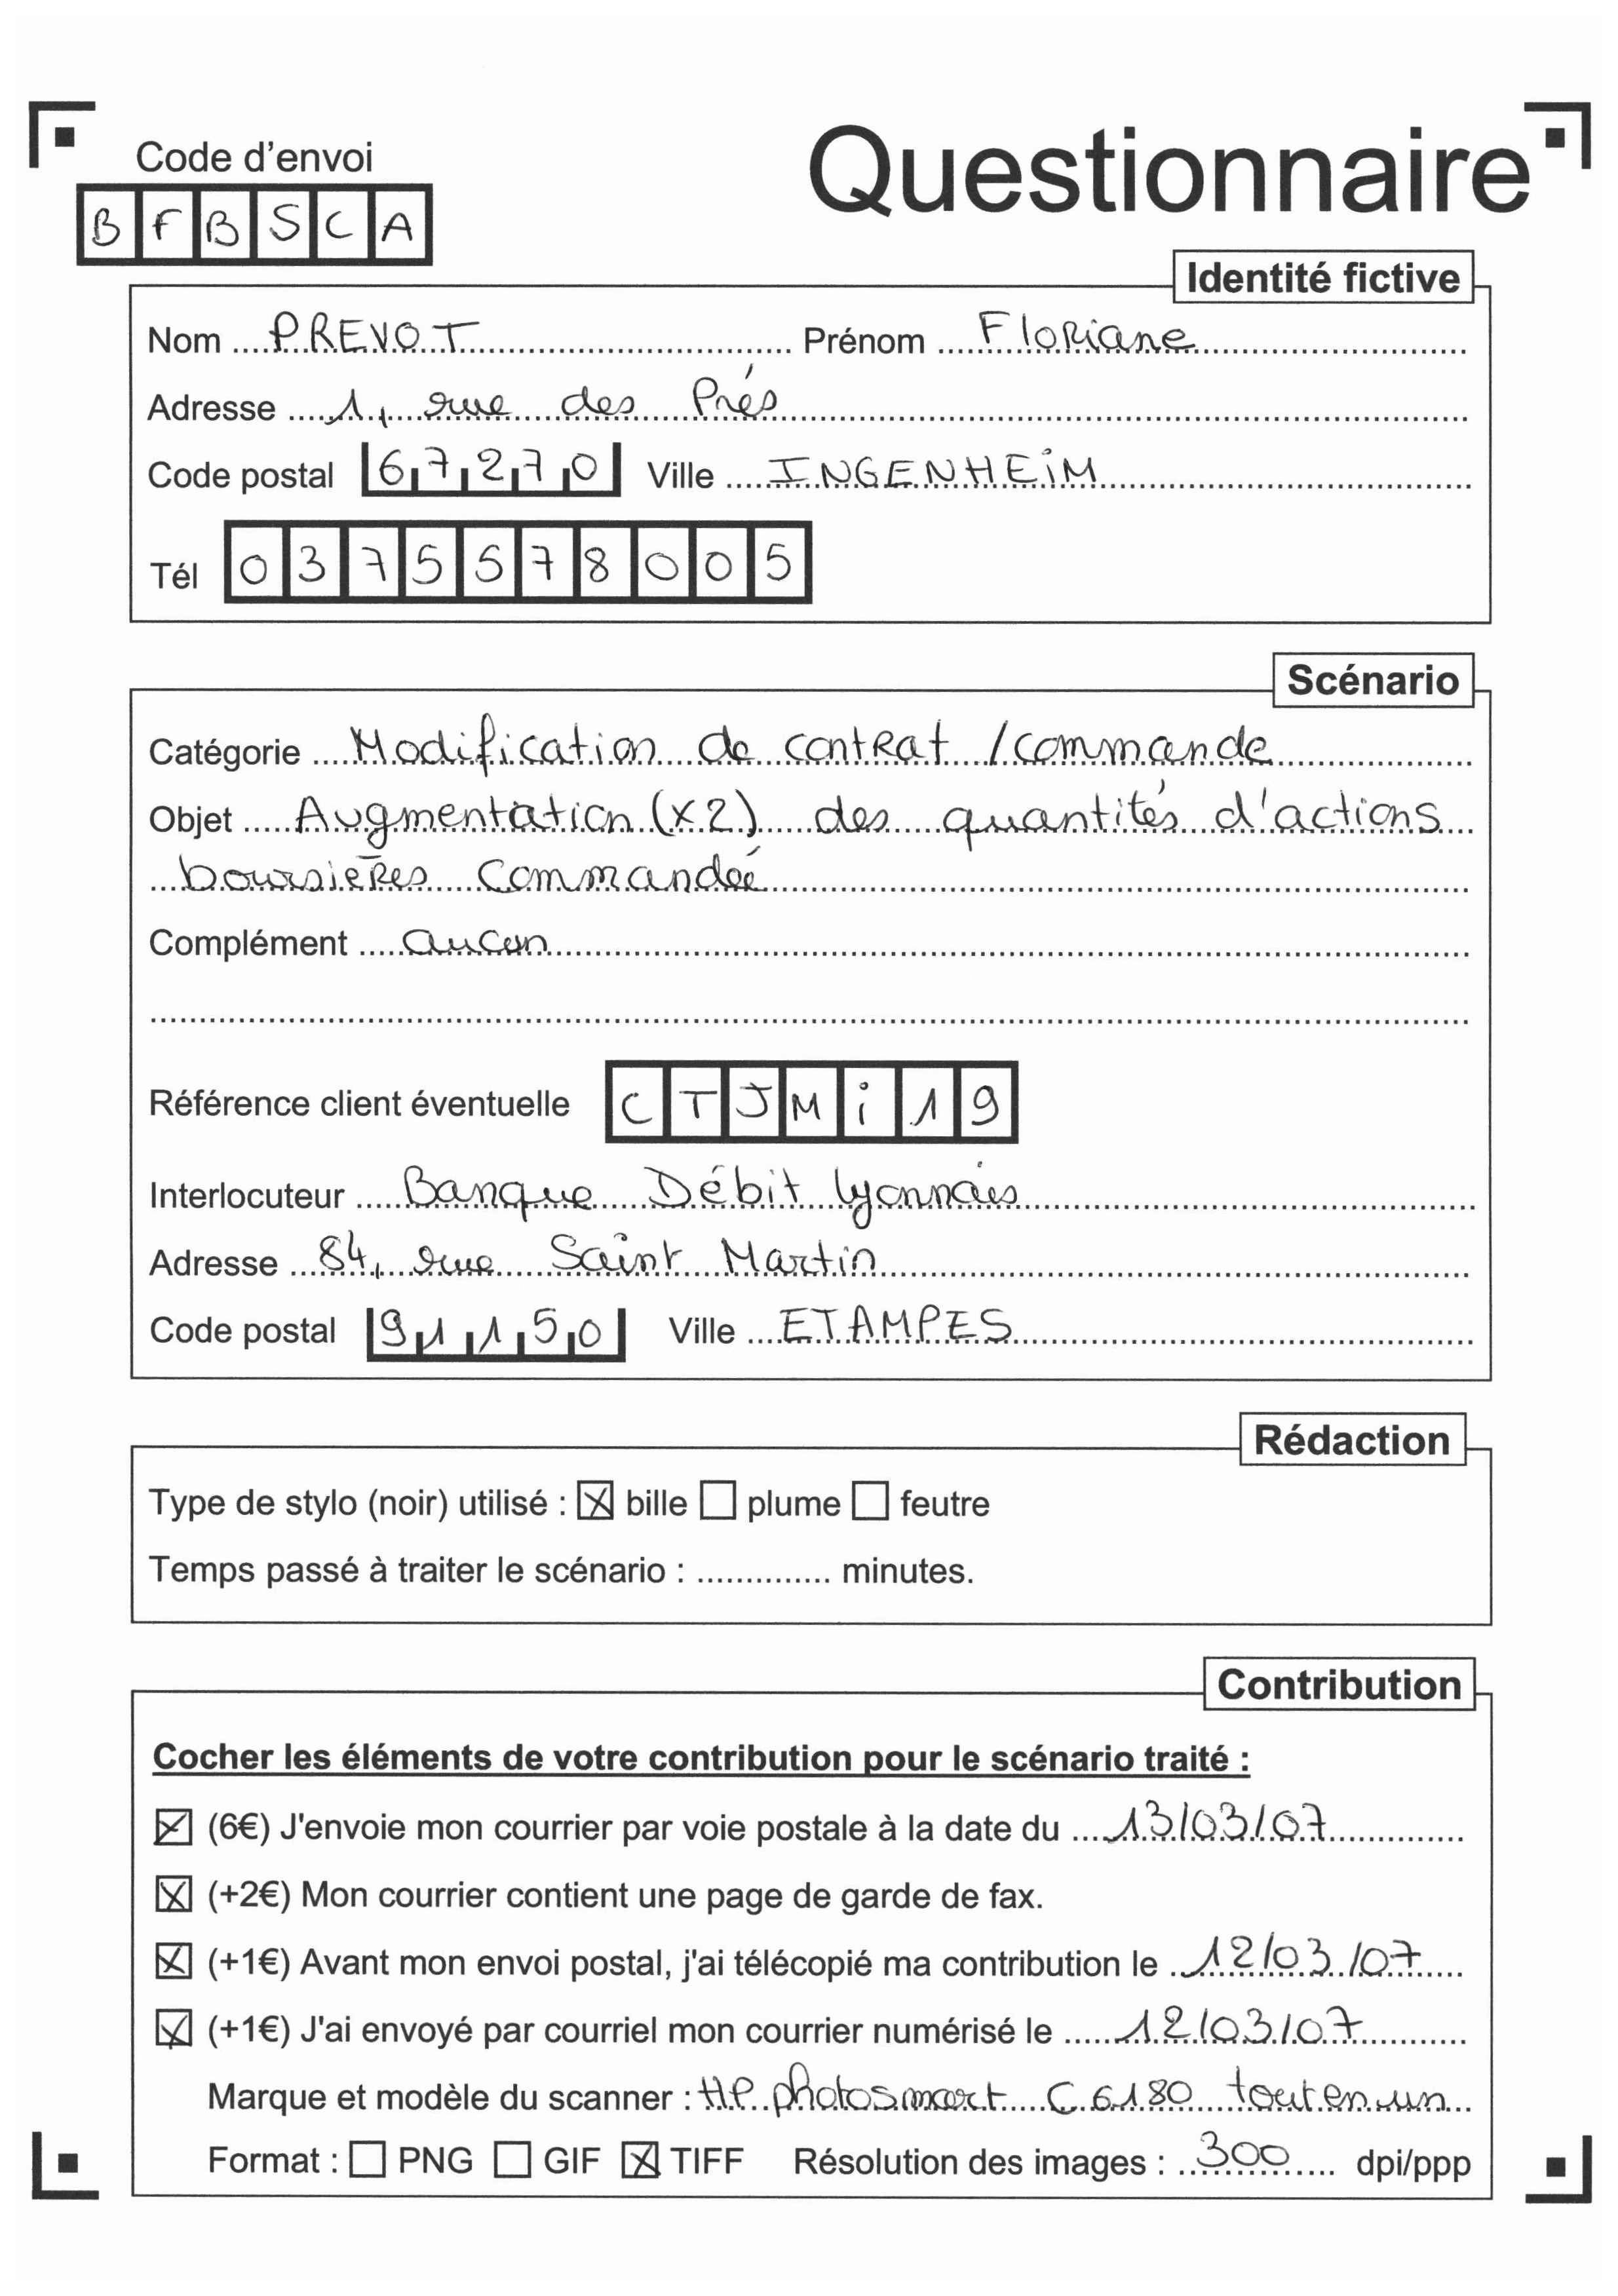 Code d'envoi
Questionnaire
BFBSCA
Identité fictive
Nom PREVOT Prénom Floriane
Adresse 1, rue des Prés
Code postal 67270 Ville INGENHEiM
Tél 0375578005
Scénario
Catégorie Modification de contrat / commande
Objet Augmentation (x2) des quantités d'actions
boursières commandée
Complément aucun
Référence client éventuelle CTJMi19
Interlocuteur Banque Débit Lyonnais
Adresse 84, rue Saint Martin
Code postal 91150 Ville ETAMPES
Rédaction
Type de stylo (noir) utilisé : ☒ bille ☐ plume ☐ feutre
Temps passé à traiter le scénario : .............. minutes.
Contribution
Cocher les éléments de votre contribution pour le scénario traité :
☒ (6€) J'envoie mon courrier par voie postale à la date du 13/03/07
☒ (+2€) Mon courrier contient une page de garde de fax.
☒ (+1€) Avant mon envoi postal, j'ai télécopié ma contribution le 12/03/07
☒ (+1€) J'ai envoyé par courriel mon courrier numérisé le 12/03/07
Marque et modèle du scanner : HP photosmart C6180 tout en un
Format : ☐ PNG ☐ GIF ☒ TIFF Résolution des images : 300 dpi/ppp